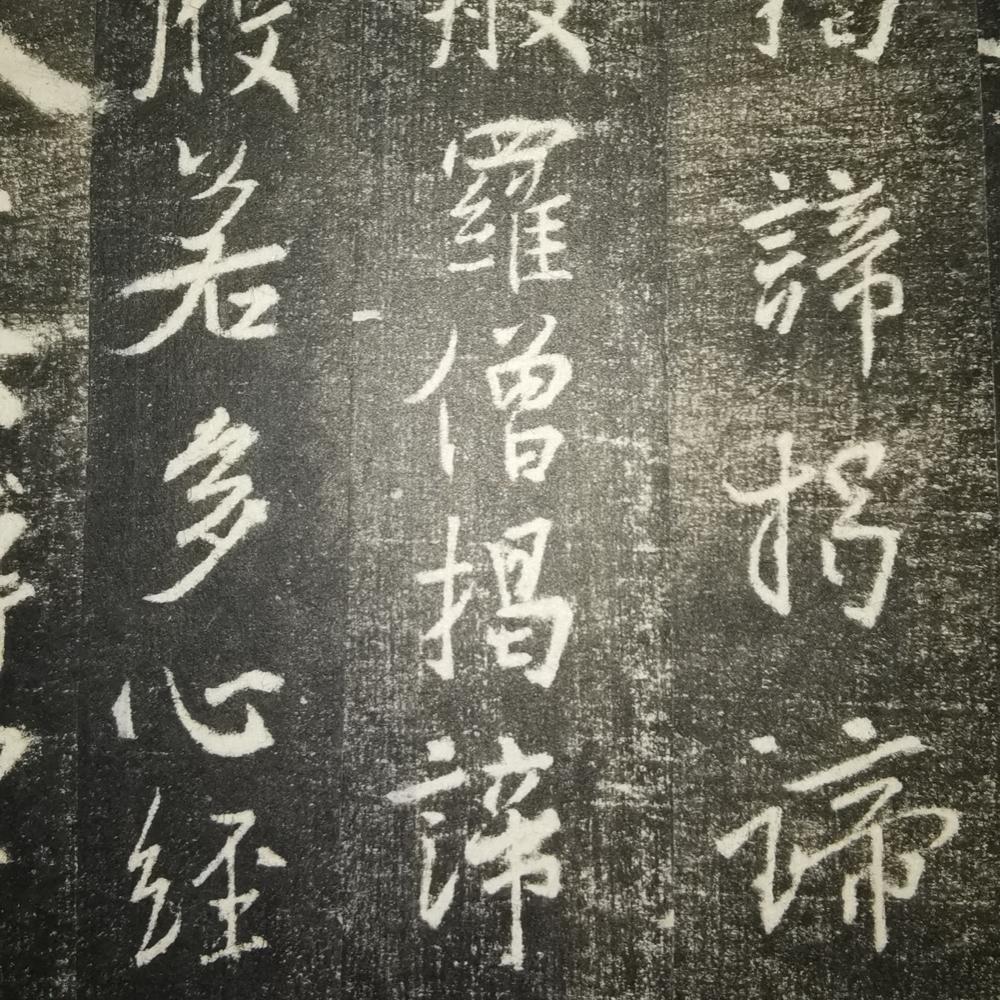 揭諦揭諦
般羅僧揭諦
般若多心經